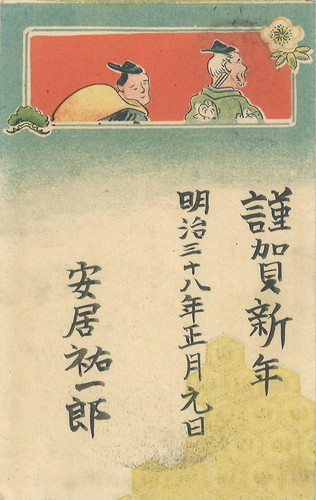 謹賀新年
明治三十八年正月元日
安居祐一郎